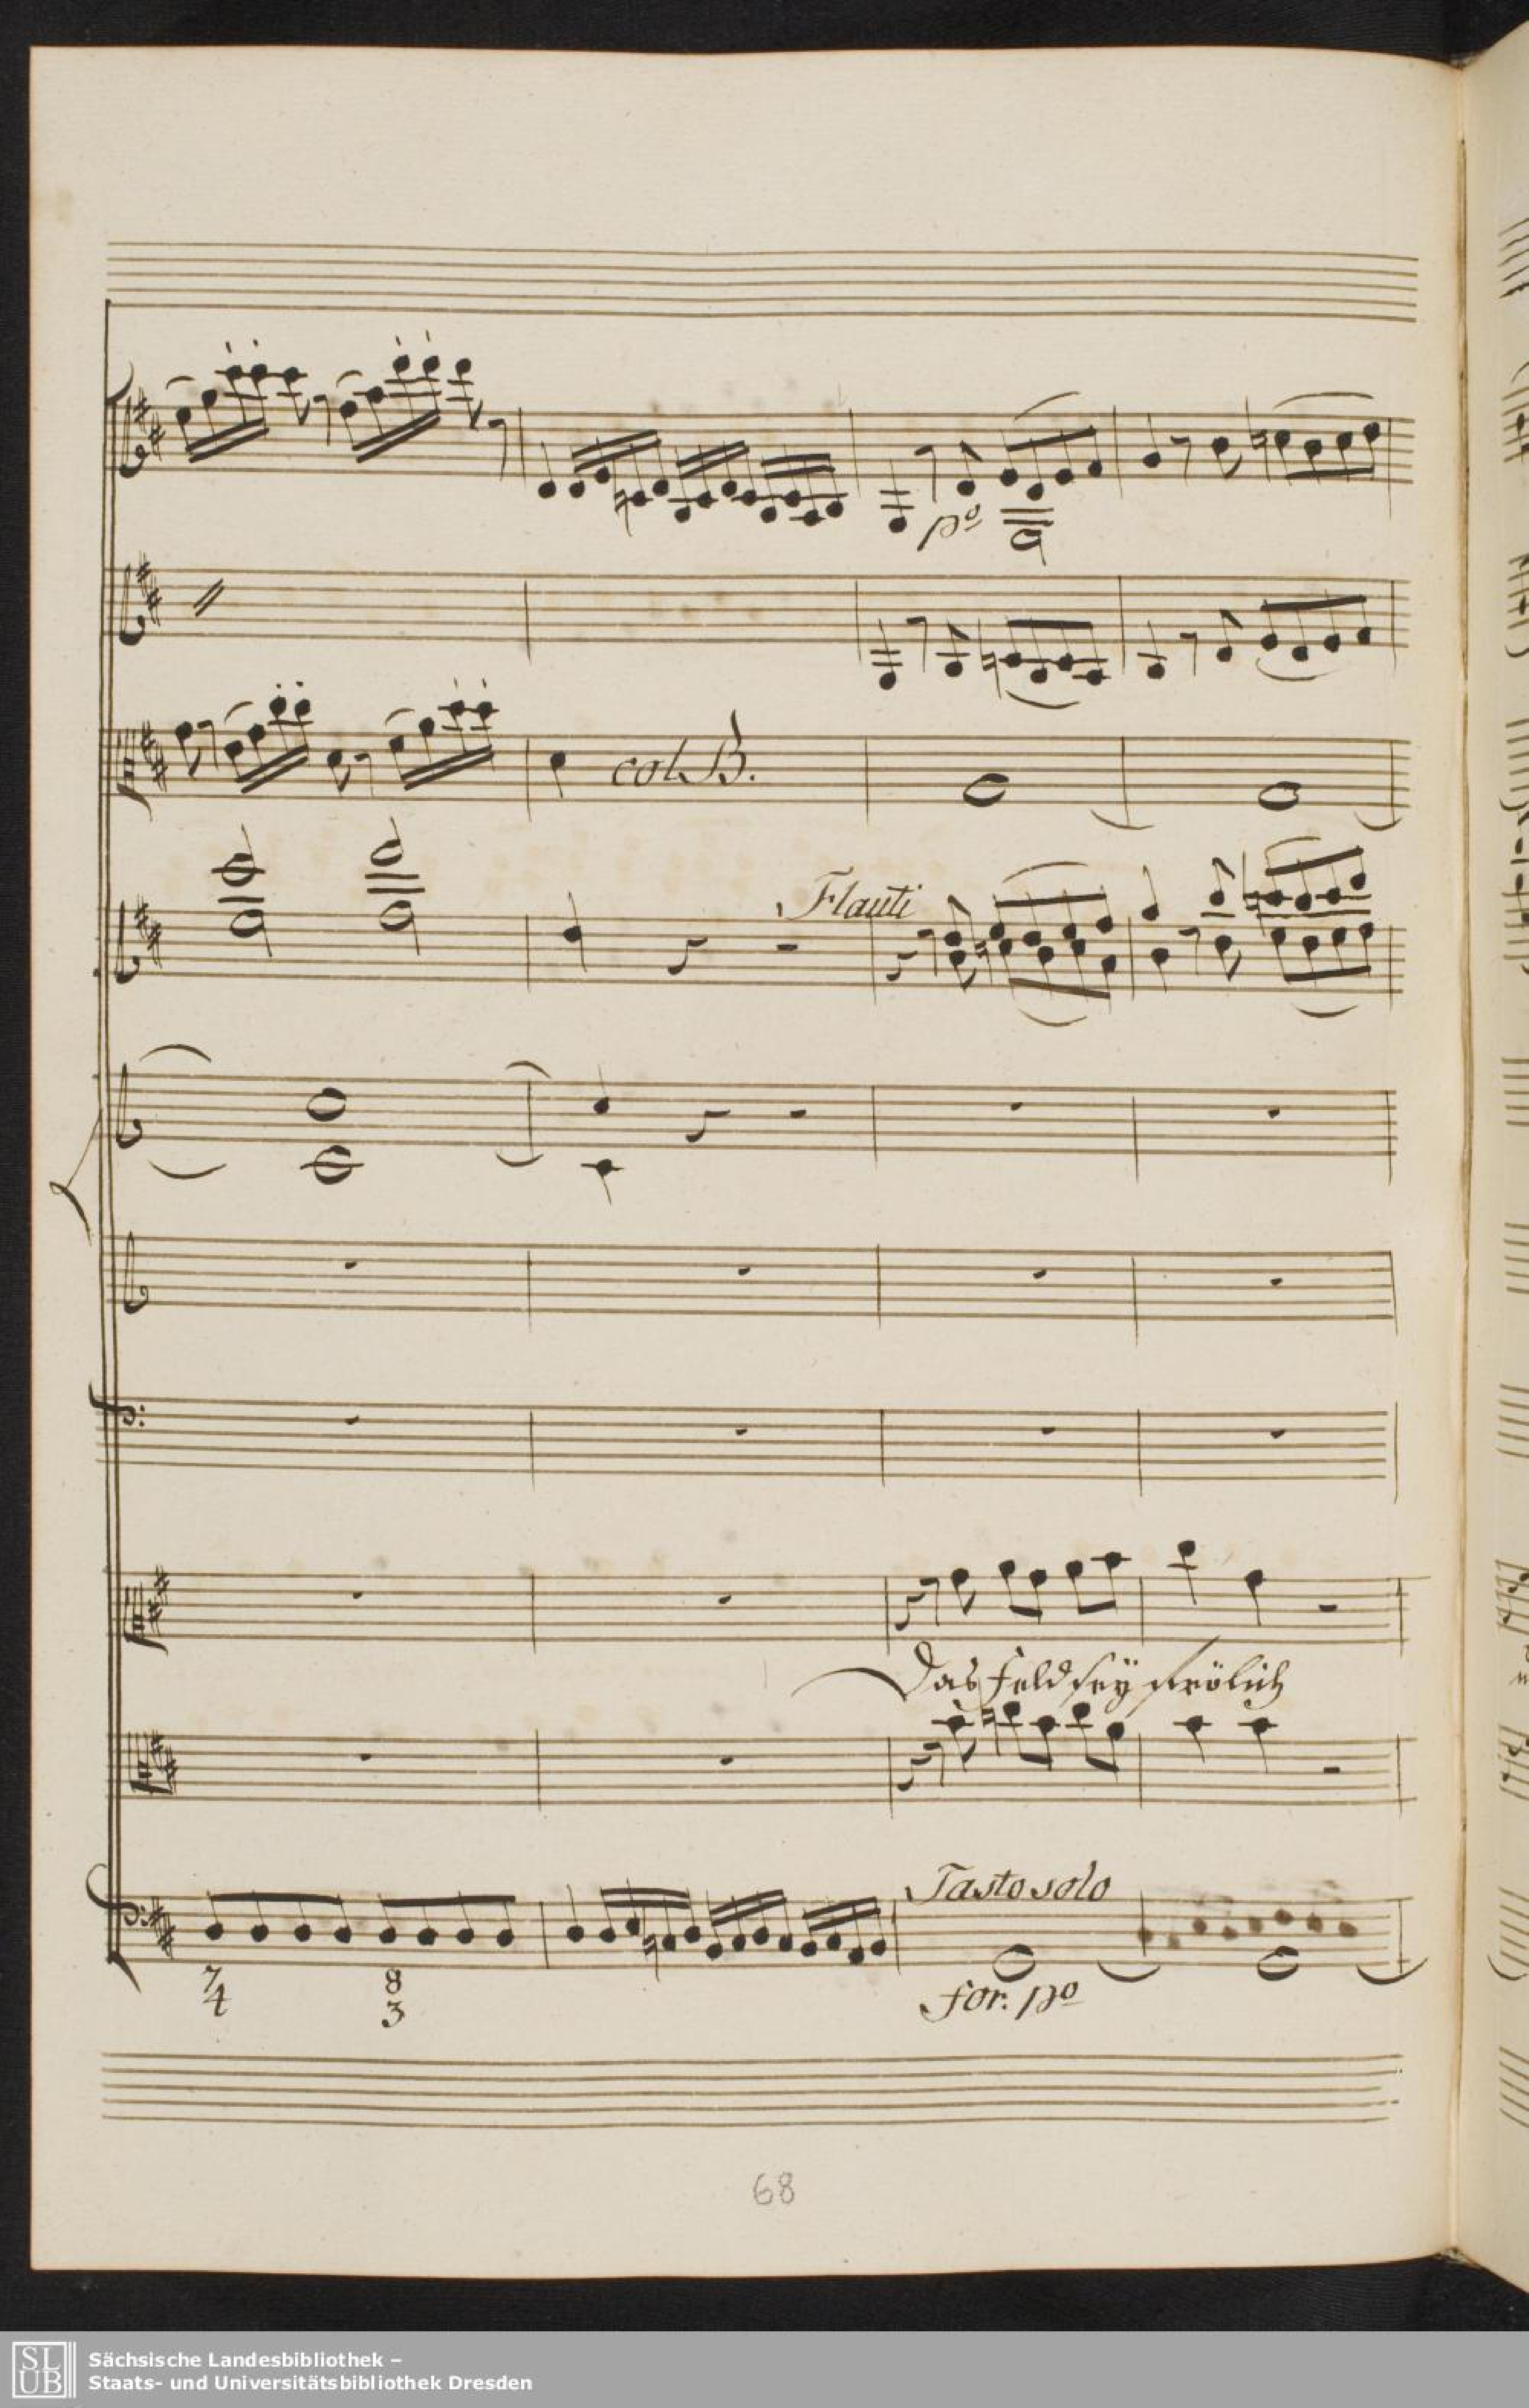 po
col. B.
Flauti
Das Feld sey frölich
Tasto solo
7
4
8
3
for. po
68
SLUB
Sächsische Landesbibliothek –
Staats- und Universitätsbibliothek Dresden